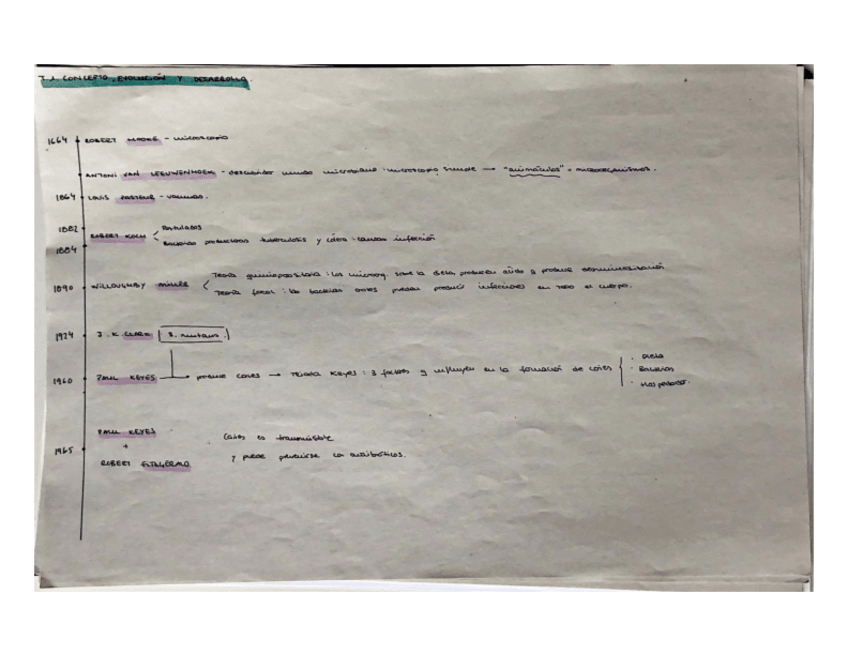 T.1. CONCEPTO, EVOLUCIÓN Y DESARROLLO.
1664 ROBERT HOOKE - microscopio
ANTONI VAN LEEUWENHOEK - descubridor mundo microbiano · microscopio simple → "animáculos" = microorganismos.
1864 LOUIS PASTEUR - vacunas.
1882 ROBERT KOCH Postulados
1884 Bacterias productoras tuberculosis y cólera · causan infección
1890 WILLOUGHBY MILLER Teoría quimioparasitaria : los microorg. sobre la dieta producen ácido y produce desmineralización
Teoría focal : las bacterias orales pueden producir infecciones en todo el cuerpo.
1924 J. K. CLARK S. mutans.
1960 PAUL KEYES produce caries → Triada Keyes : 3 factores q influyen en la formación de caries
· Dieta
· Bacterias
· Hospedador.
1965 PAUL KEYES
+
ROBERT FITZGERALD
Caries es transmisible
y puede prevenirse con antibióticos.